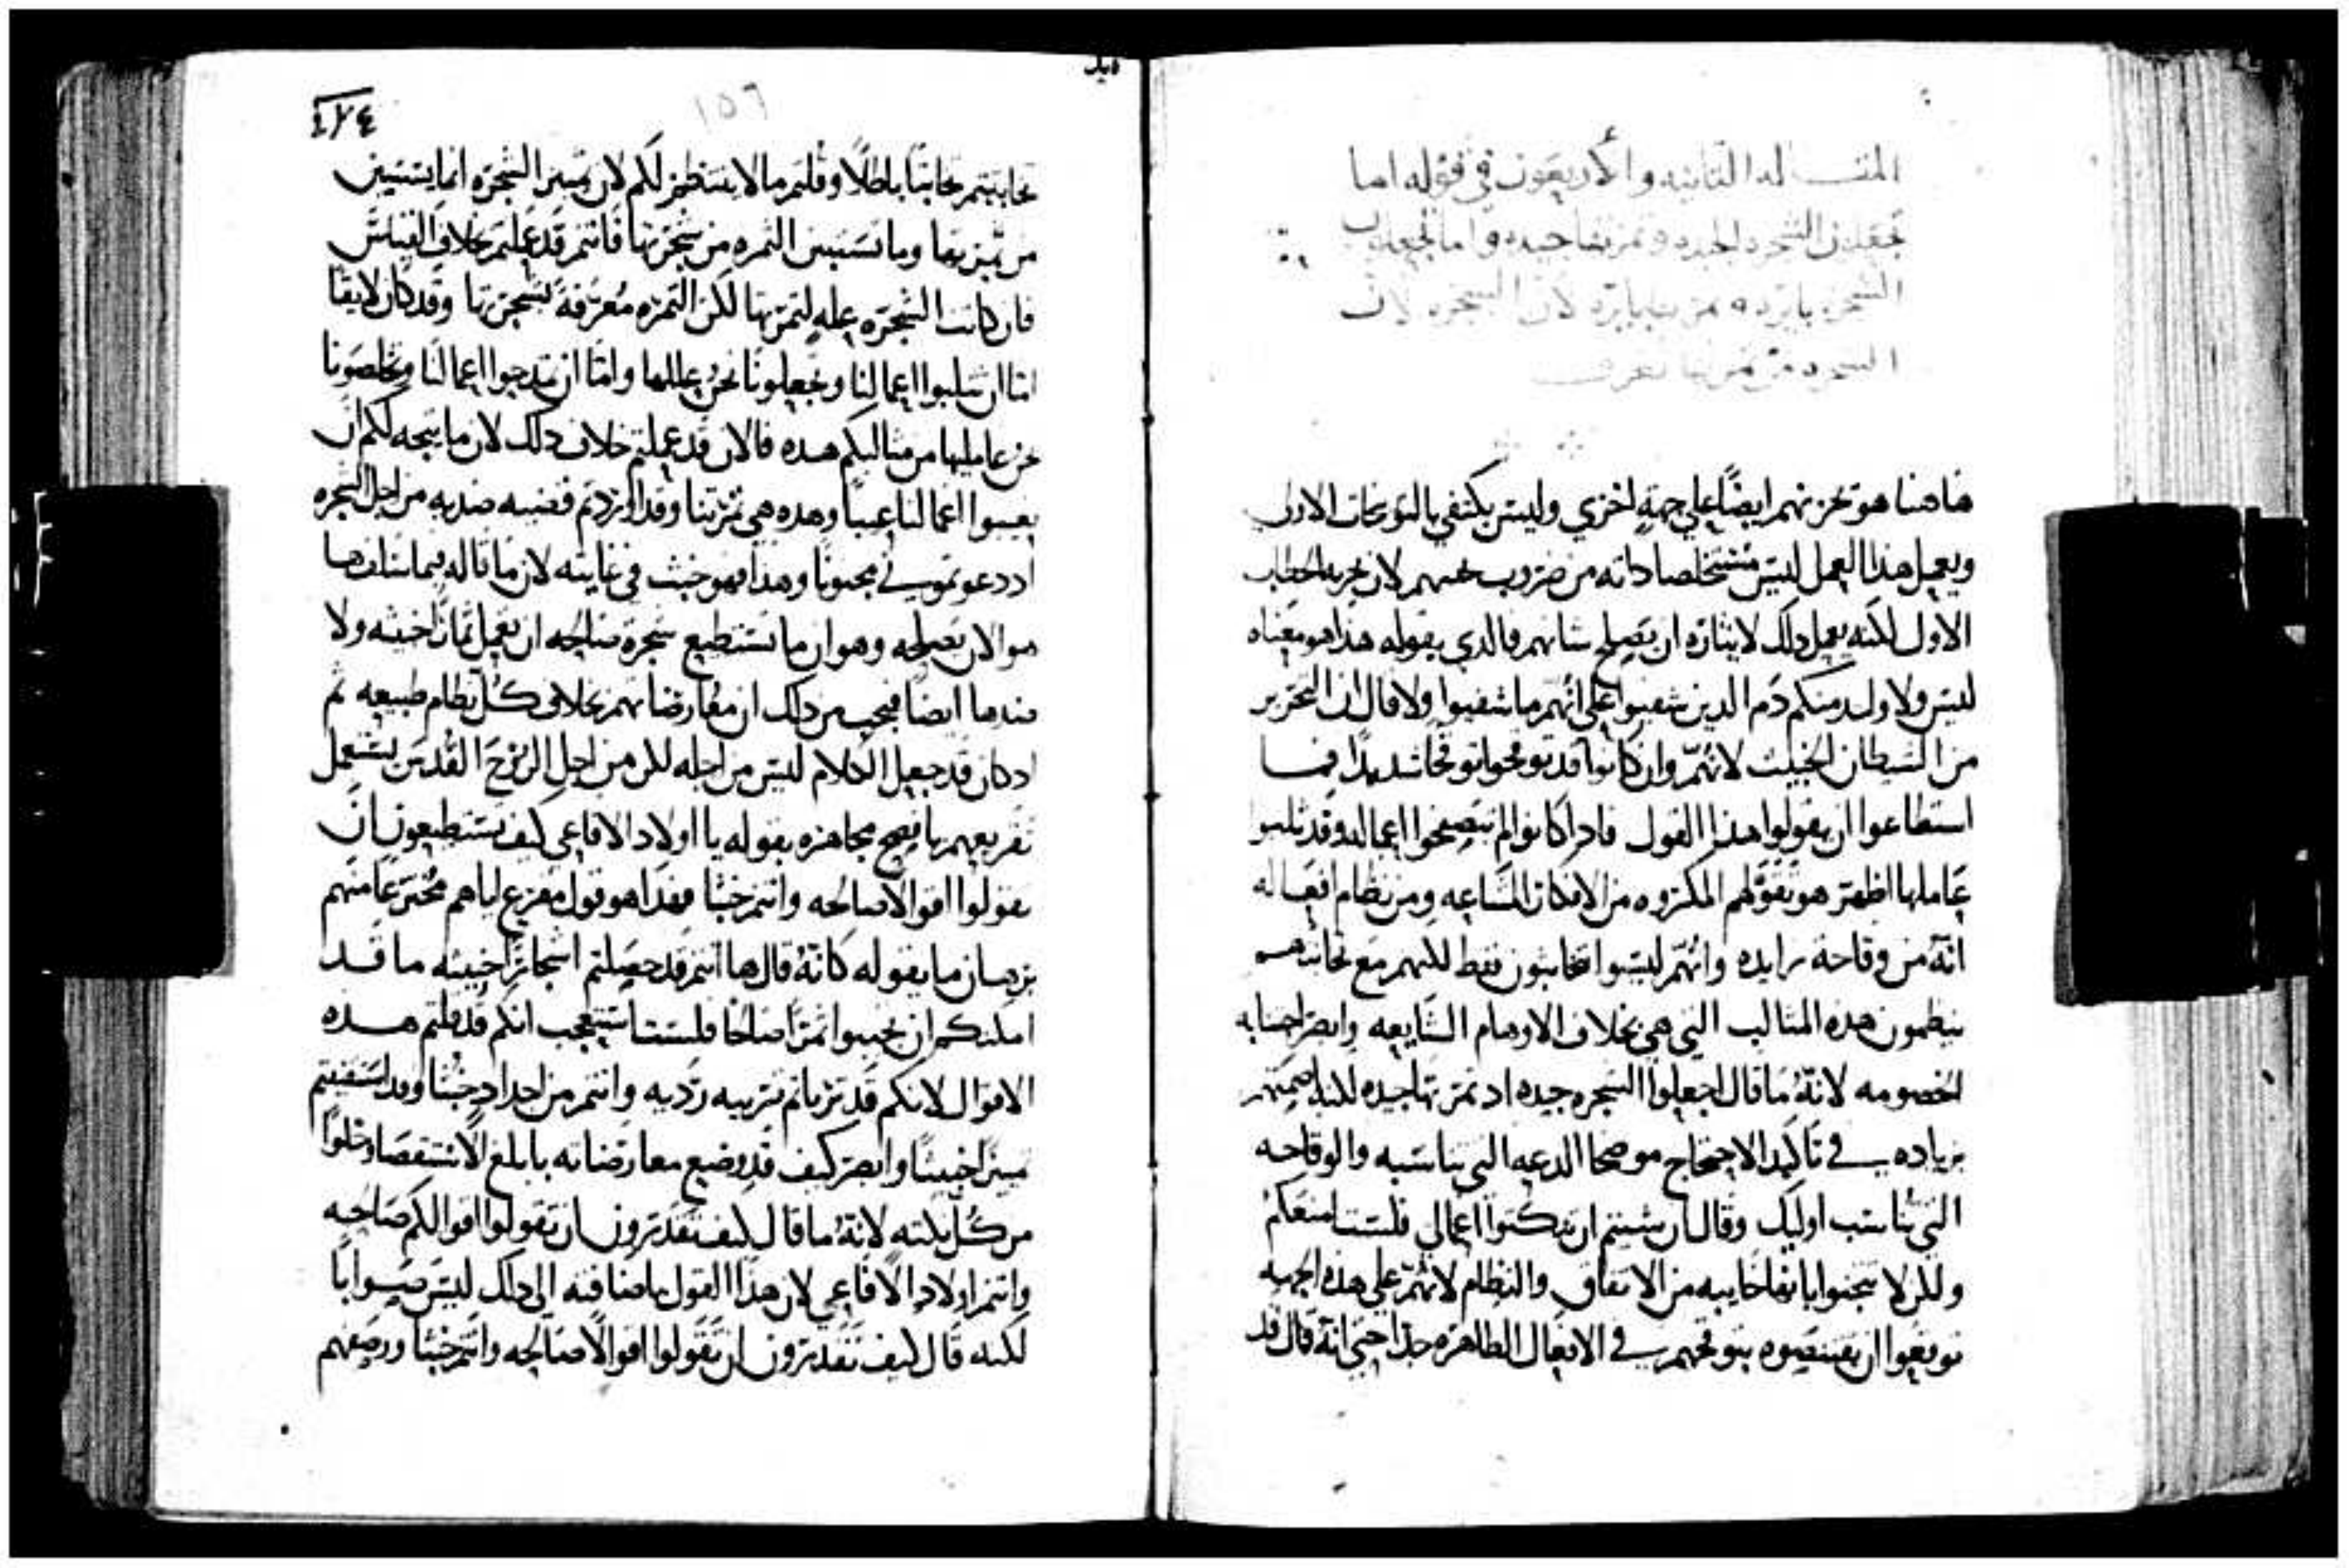 المقـــاله الثانيه والأربعون في قوله اما
تجعلون الشجره الجيده وثمرتها جيده واما تجعلون
الشجره بايره وثمرتها بايره لان الشجره لان
الشجره من ثمرتها تعرف
هاهنا هو تحزنهم ايضًا علي جهةٍ اخري وليس يكتفي بالتوبخات الاولي
ويعمل هذا العمل ليس مستخلصا ذاته من ضروب لان يجزيه الخطاب
الاول لكنه يعمل ذلك لايثاره ان يصلح شانهم فالدي يقوله هذا هو معناه
ليس ولا واحد منكم ذم الدين شفيوا علي انهم ما شفيوا ولا قال ان التحرير
من الشيطان الخبيث لانهم وان كانوا قد توقحوا توقحًا شديدًا فما
استطاعوا ان يقولوا هذا القول فاد كانوا لم يتصفحوا اعماله وقد ثلبوا
عاملها اظهر هو تقولهم المكروه من الافكار الشايعه ومن نظام افعاله
انه من وقاحة زايده وانهم ليسوا يتخابثون فقط لكنهم مع تخابثهم
ينظمون هذه المثالب التي هي بخلاف الاوهام الشايعه وابصر اجتنابه
الخصومه لانهُ ما قال اجعلوا الشجره جيده اد ثمرتها جيده لكنه
بزياده في تاكيد الاحتجاج موضحا الدعه التي تناسبه والوقاحه
التي تناسب اوليك وقال ان شيتم ان تنكتوا اعمالي فلست امنعكم
ولكن لا تتجنوا باتهاما خايبه من الاتفاق والنظام لانهم علي هذه الجهه
توقعوا ان يقتنصوه بتوبخهم في الافعال الظاهره جدا حتي انه قال قد
١٥٦
تخابثتم تخابثًا باطلًا وقلتم ما لا يستظهر لكم لان تمييز الشجره انما يستبين
من ثمرتها وما تستبين الثمره من شجرتها فانتم قد عملتم بخلاف القياس
فان كانت الشجره عله لثمرتها لكن الثمره معرفةً لشجرتها وقد كان لايقا
اما ان ثلبوا اعمالنا وتجعلونا نحن عللها واما ان تمدحوا اعمالنا وتخلصونا
نحن عامليها من مثالبكم هذه فالان قد عملتم خلاف ذلك لان ما يتجه لكم ان
تعيبوا اعمالنا عيبًا وهذه هي ثمرتنا وقد اوردتم قضيه ضديه من اجل الشجره
اد دعوتموني مجنونًا وهذا فهو خبث في غايته لان ما قاله فيما سلف ها
هو الان يصلحه وهو ان ما تستطيع شجرة صالحه ان تعمل ثمارًا خبيثه ولا
ضدها ايضًا فيجب من ذلك ان معارضاتهم بخلاف كل نظام طبيعه ثم
اد كان قد جعل الكلام ليس من اجله لكن من اجل الروح القدس يستعمل
تقريعهم بافصح مجاهره بقوله يا اولاد الافاعي كيف تستطيعون ان
تقولوا اقوالًا صالحه وانتم خبثا فهذا هو قول مقرع اياهم مخترعًا منهم
برهان ما يقوله كانه قال ها انتم قد حصلتم اشجارًا خبيثه ما قد
امكنكم ان تجيبوا ثمرًا صالحًا فلست استعجب انكم قد قلتم هذه
الاقوال لانكم قد تربيتم تربيه رديه وانتم من اجدادٍ خبثا وقد استفدتم
تمييزًا خبيثًا وابصر كيف قد وضع معارضاته بابلغ الاستقصا وخلوًا
من كل نكته لانهُ ما قال كيف تقدرون ان تقولوا اقوالكم صالحه
وانتم اولاد الافاعي لان هذا القول باضافته الي ذلك ليس صوابًا
لكنه قال كيف تقدرون ان تقولوا اقوالًا صالحه وانتم خبثا